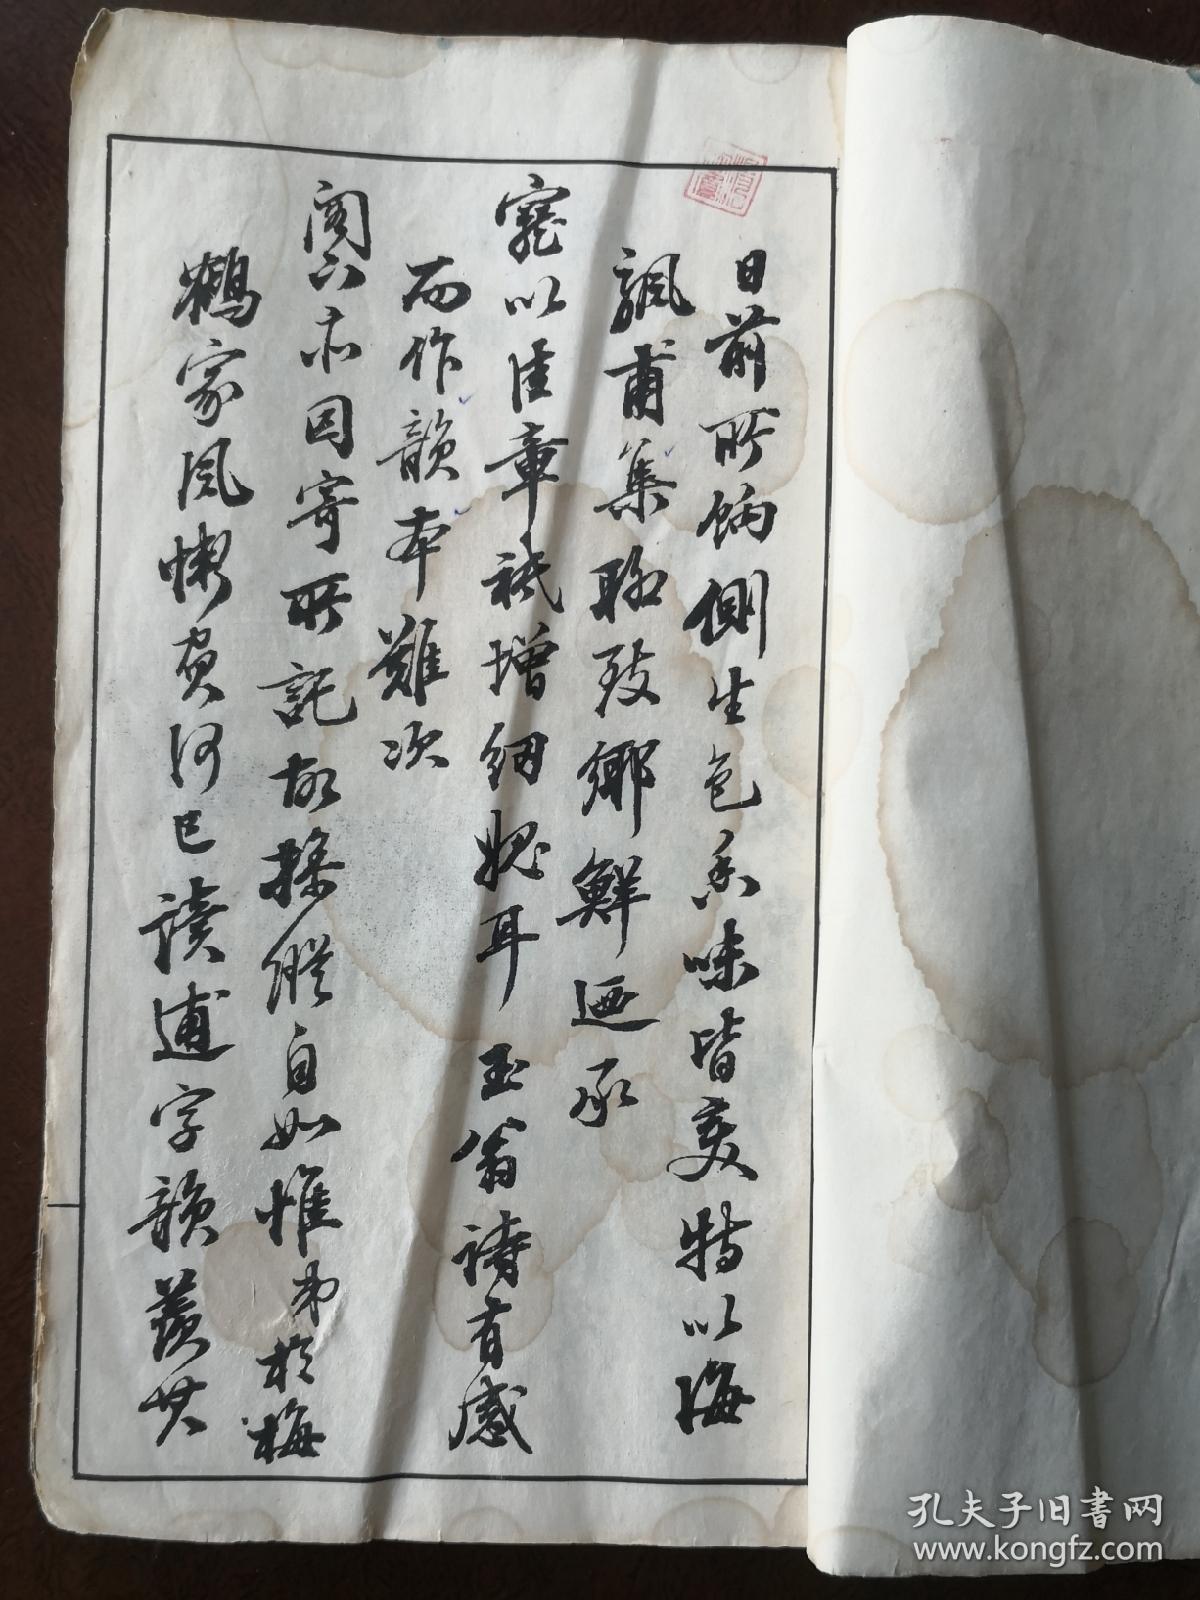 日前所餉側生色香味皆美特以海
颿甫集聊致鄉鮮迺承
寵以佳章祗增紉媿耳 玉翁詩有感
而作韻本難次
閣下亦因寄所託故操縱自如惟弟於梅
鶴家風慚負何已讀逋字韻羨其
孔夫子旧书网
www.kongfz.com